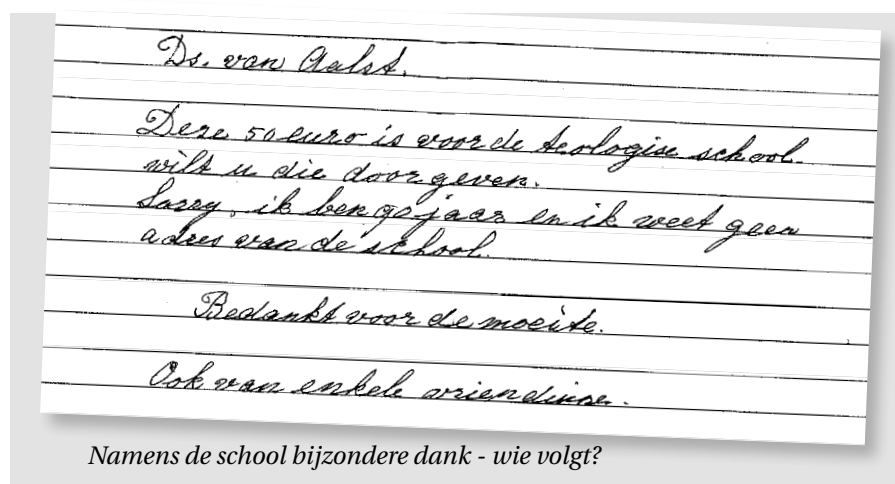 Ds. van Aalst.
Deze 50 euro is voor de teologise school.
wilt u die door geven.
Sorry, ik ben 90 jaar en ik weet geen
adres van de school.
Bedankt voor de moeite.
Ook van enkele vriendinne.
Namens de school bijzondere dank - wie volgt?